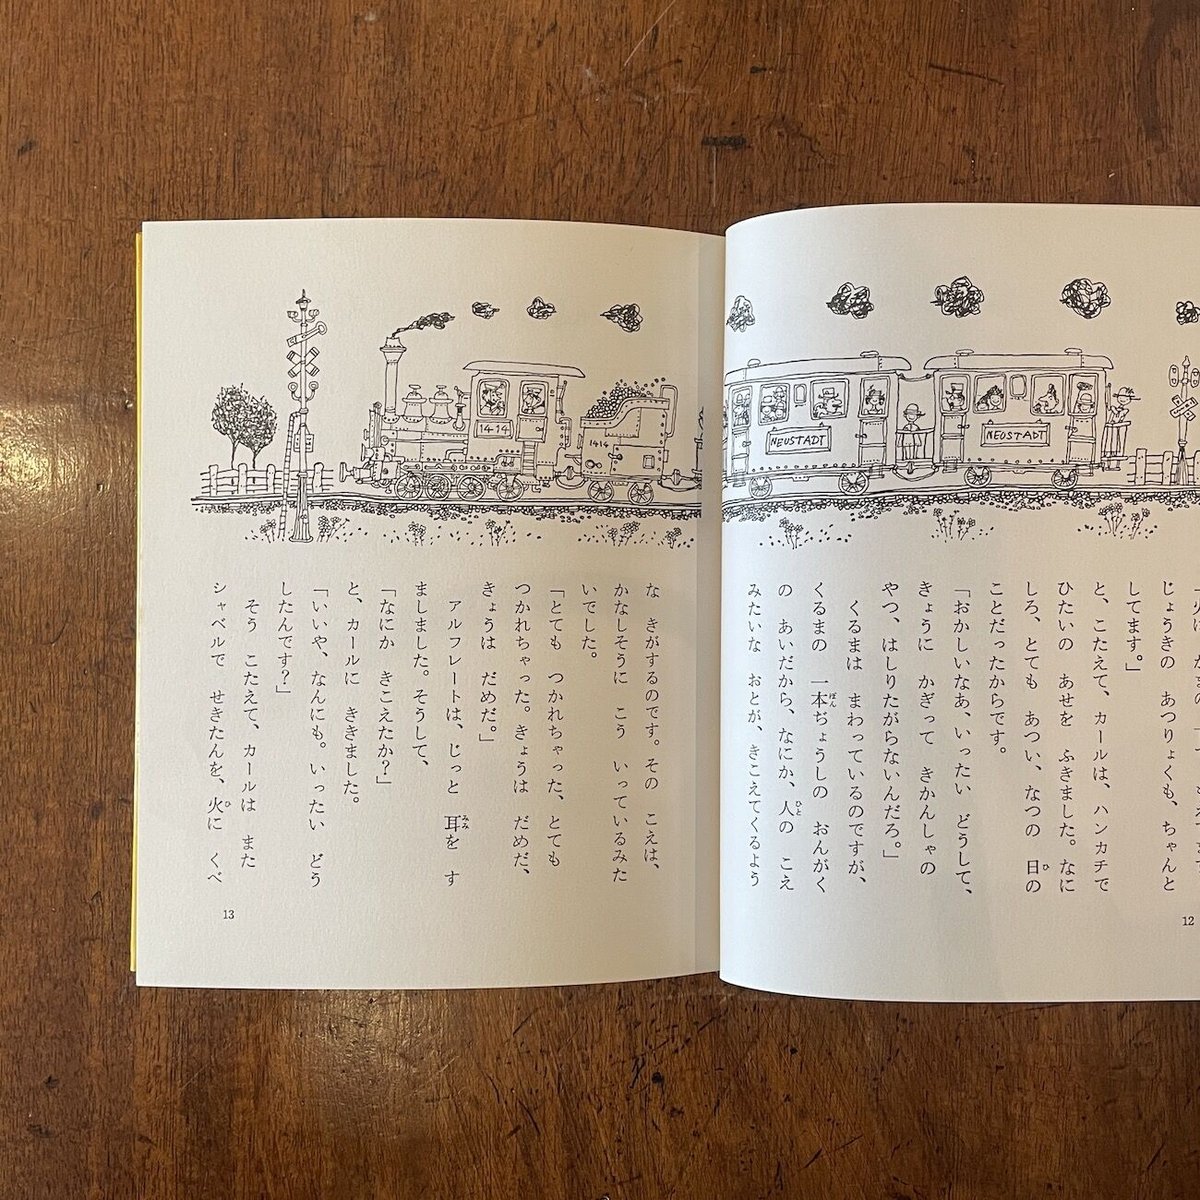 じょうきの あつりょくも、ちゃんと
してます。」
と、こたえて、カールは、ハンカチで
ひたいの あせを ふきました。なに
しろ、とても あつい、なつの 日の
ことだったからです。
「おかしいなあ、いったい どうして、
きょうに かぎって きかんしゃの
やつ、はしりたがらないんだろ。」
くるまは まわっているのですが、
くるまの 一本ぢょうしの おんがく
の あいだから、なにか、人の こえ
みたいな おとが、きこえてくるよう
12
NEUSTADT
NEUSTADT
1414
1414
な きがするのです。その こえは、
かなしそうに こう いっているみた
いでした。
「とても つかれちゃった、とても
つかれちゃった。きょうは だめだ、
きょうは だめだ。」
アルフレートは、じっと 耳を す
ましました。そうして、
「なにか きこえたか?」
と、カールに ききました。
「いいや、なんにも。いったい どう
したんです?」
そう こたえて、カールは また
シャベルで せきたんを、火に くべ
13